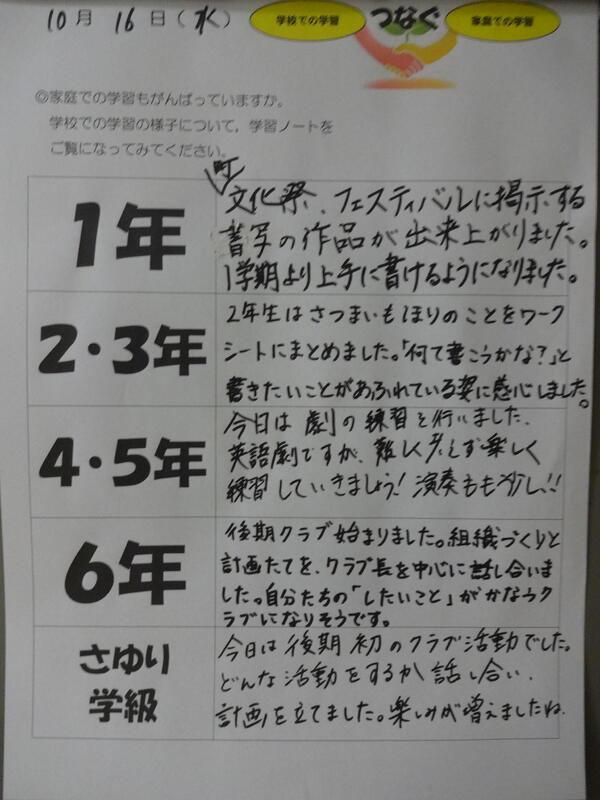 10月 16日(水)
学校での学習
つなぐ
家庭での学習
◎家庭での学習もがんばっていますか。
学校での学習の様子について,学習ノートを
ご覧になってみてください。
1年
町
文化祭、フェスティバルに掲示する
書写の作品が出来上がりました。
1学期より上手に書けるようになりました。
2・3年
2年生はさつまいもほりのことをワーク
シートにまとめました。「何て書こうかな?」と
書きたいことがあふれている姿に感心しました。
4・5年
今日は劇の練習を行いました.
英語劇ですが、難しく考えず楽しく
練習していきましょう!演奏ももう少し!!
6年
後期クラブ始まりました。組織づくりと
計画たてを、クラブ長を中心に話し合いま
した。自分たちの「したいこと」がかなうク
ラブになりそうです。
さゆり
学級
今日は後期初のクラブ活動でした。
どんな活動をするか話し合い、
計画を立てました。楽しみが増えましたね.